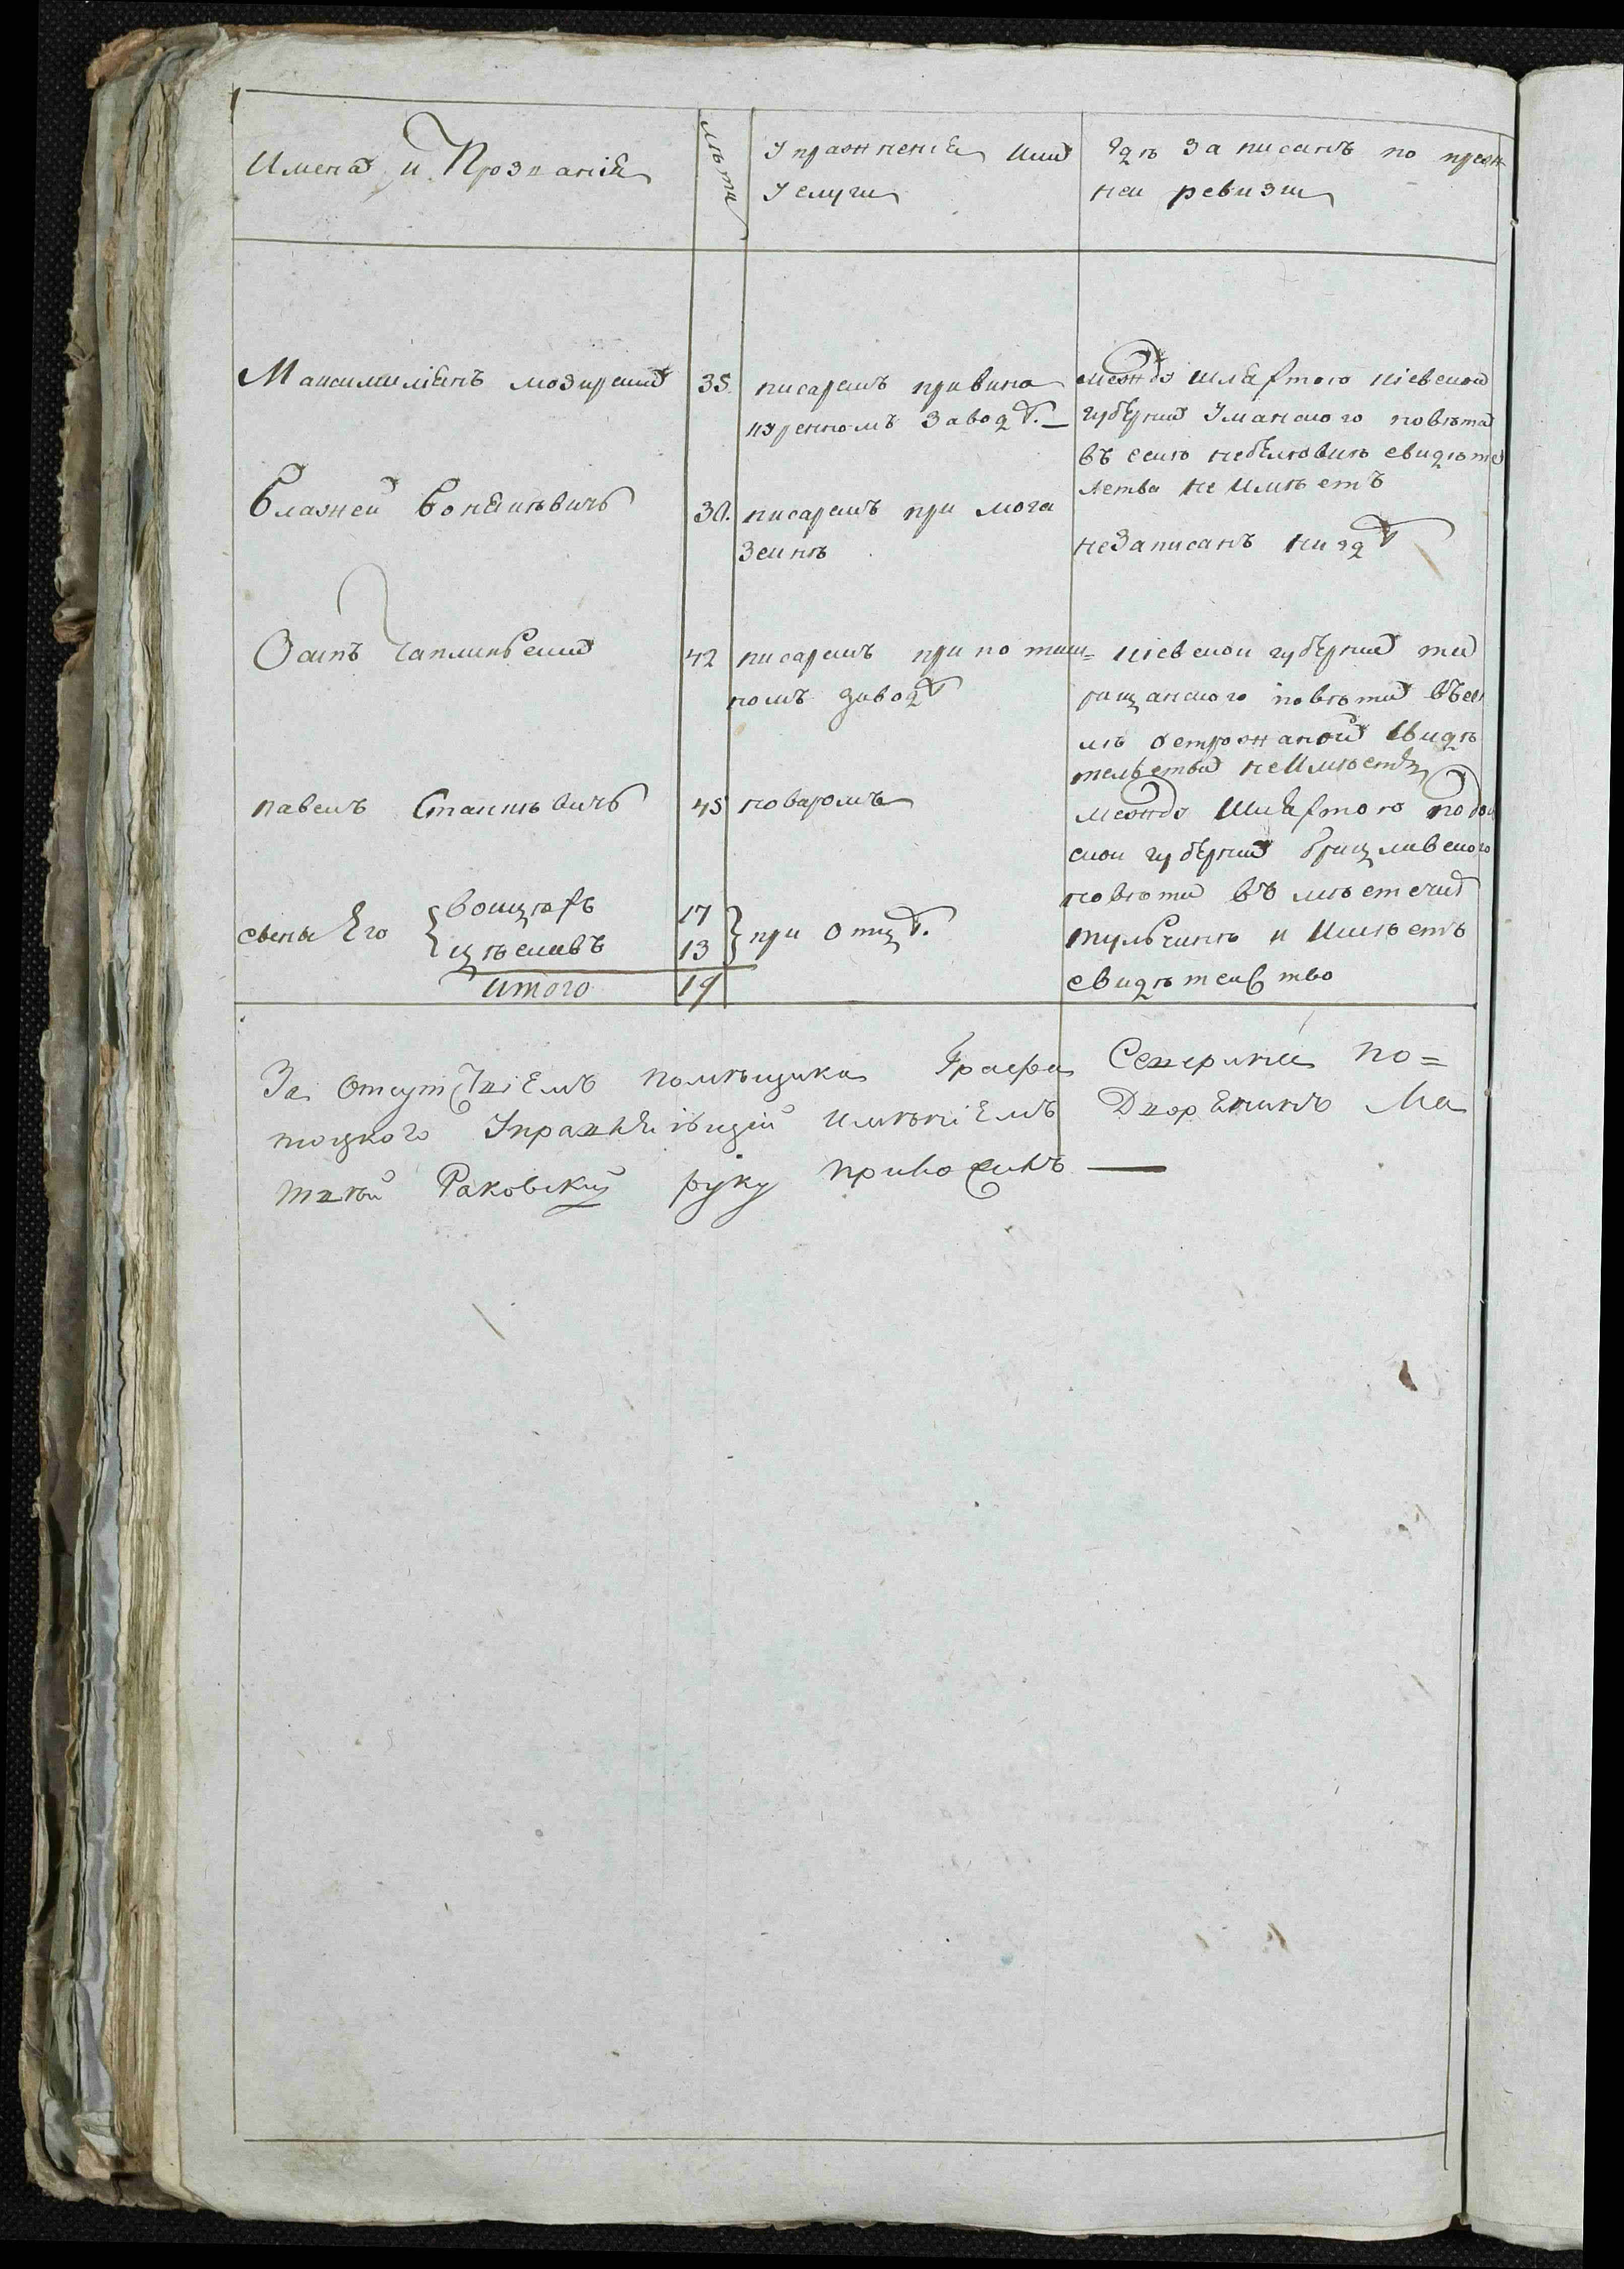 Имена и Прозванія
лѣта
Упражненіе или
услуги
Гдѣ записанъ по преж
ней ревизіи
Максимиліянъ мозирскій
35.
писаремъ при вино
куренномъ заводѣ. —
между шляхтою кіевской
губерніи Уманского повѣта
въ селѣ свидѣте
лства не имѣетъ
Блажей
30.
писаремъ при мога
зеинѣ
незаписанъ нигдѣ
Осипъ Чаплинскій
42
писаремъ при поташ=
номъ заводѣ
кіевской губерніи та
ращанского повѣта въ се
лѣ острожаной свидѣ
тельства не имѣетъ
павелъ Станкѣвичъ
45
поваромъ
между шляхтою подол
ской губерніи брацлавского
повѣта въ мѣстечкѣ
тульчинѣ и имѣетъ
свидѣтелство
сыны Его
войцѣхъ
17
цѣславъ
13
при отцѣ.
итого
19
За отсутствіемъ помѣщика Графа Северина По=
тоцкого Управляющій имѣніемъ Дворянинъ Ма
твѣй Раковскій руку приложилъ —